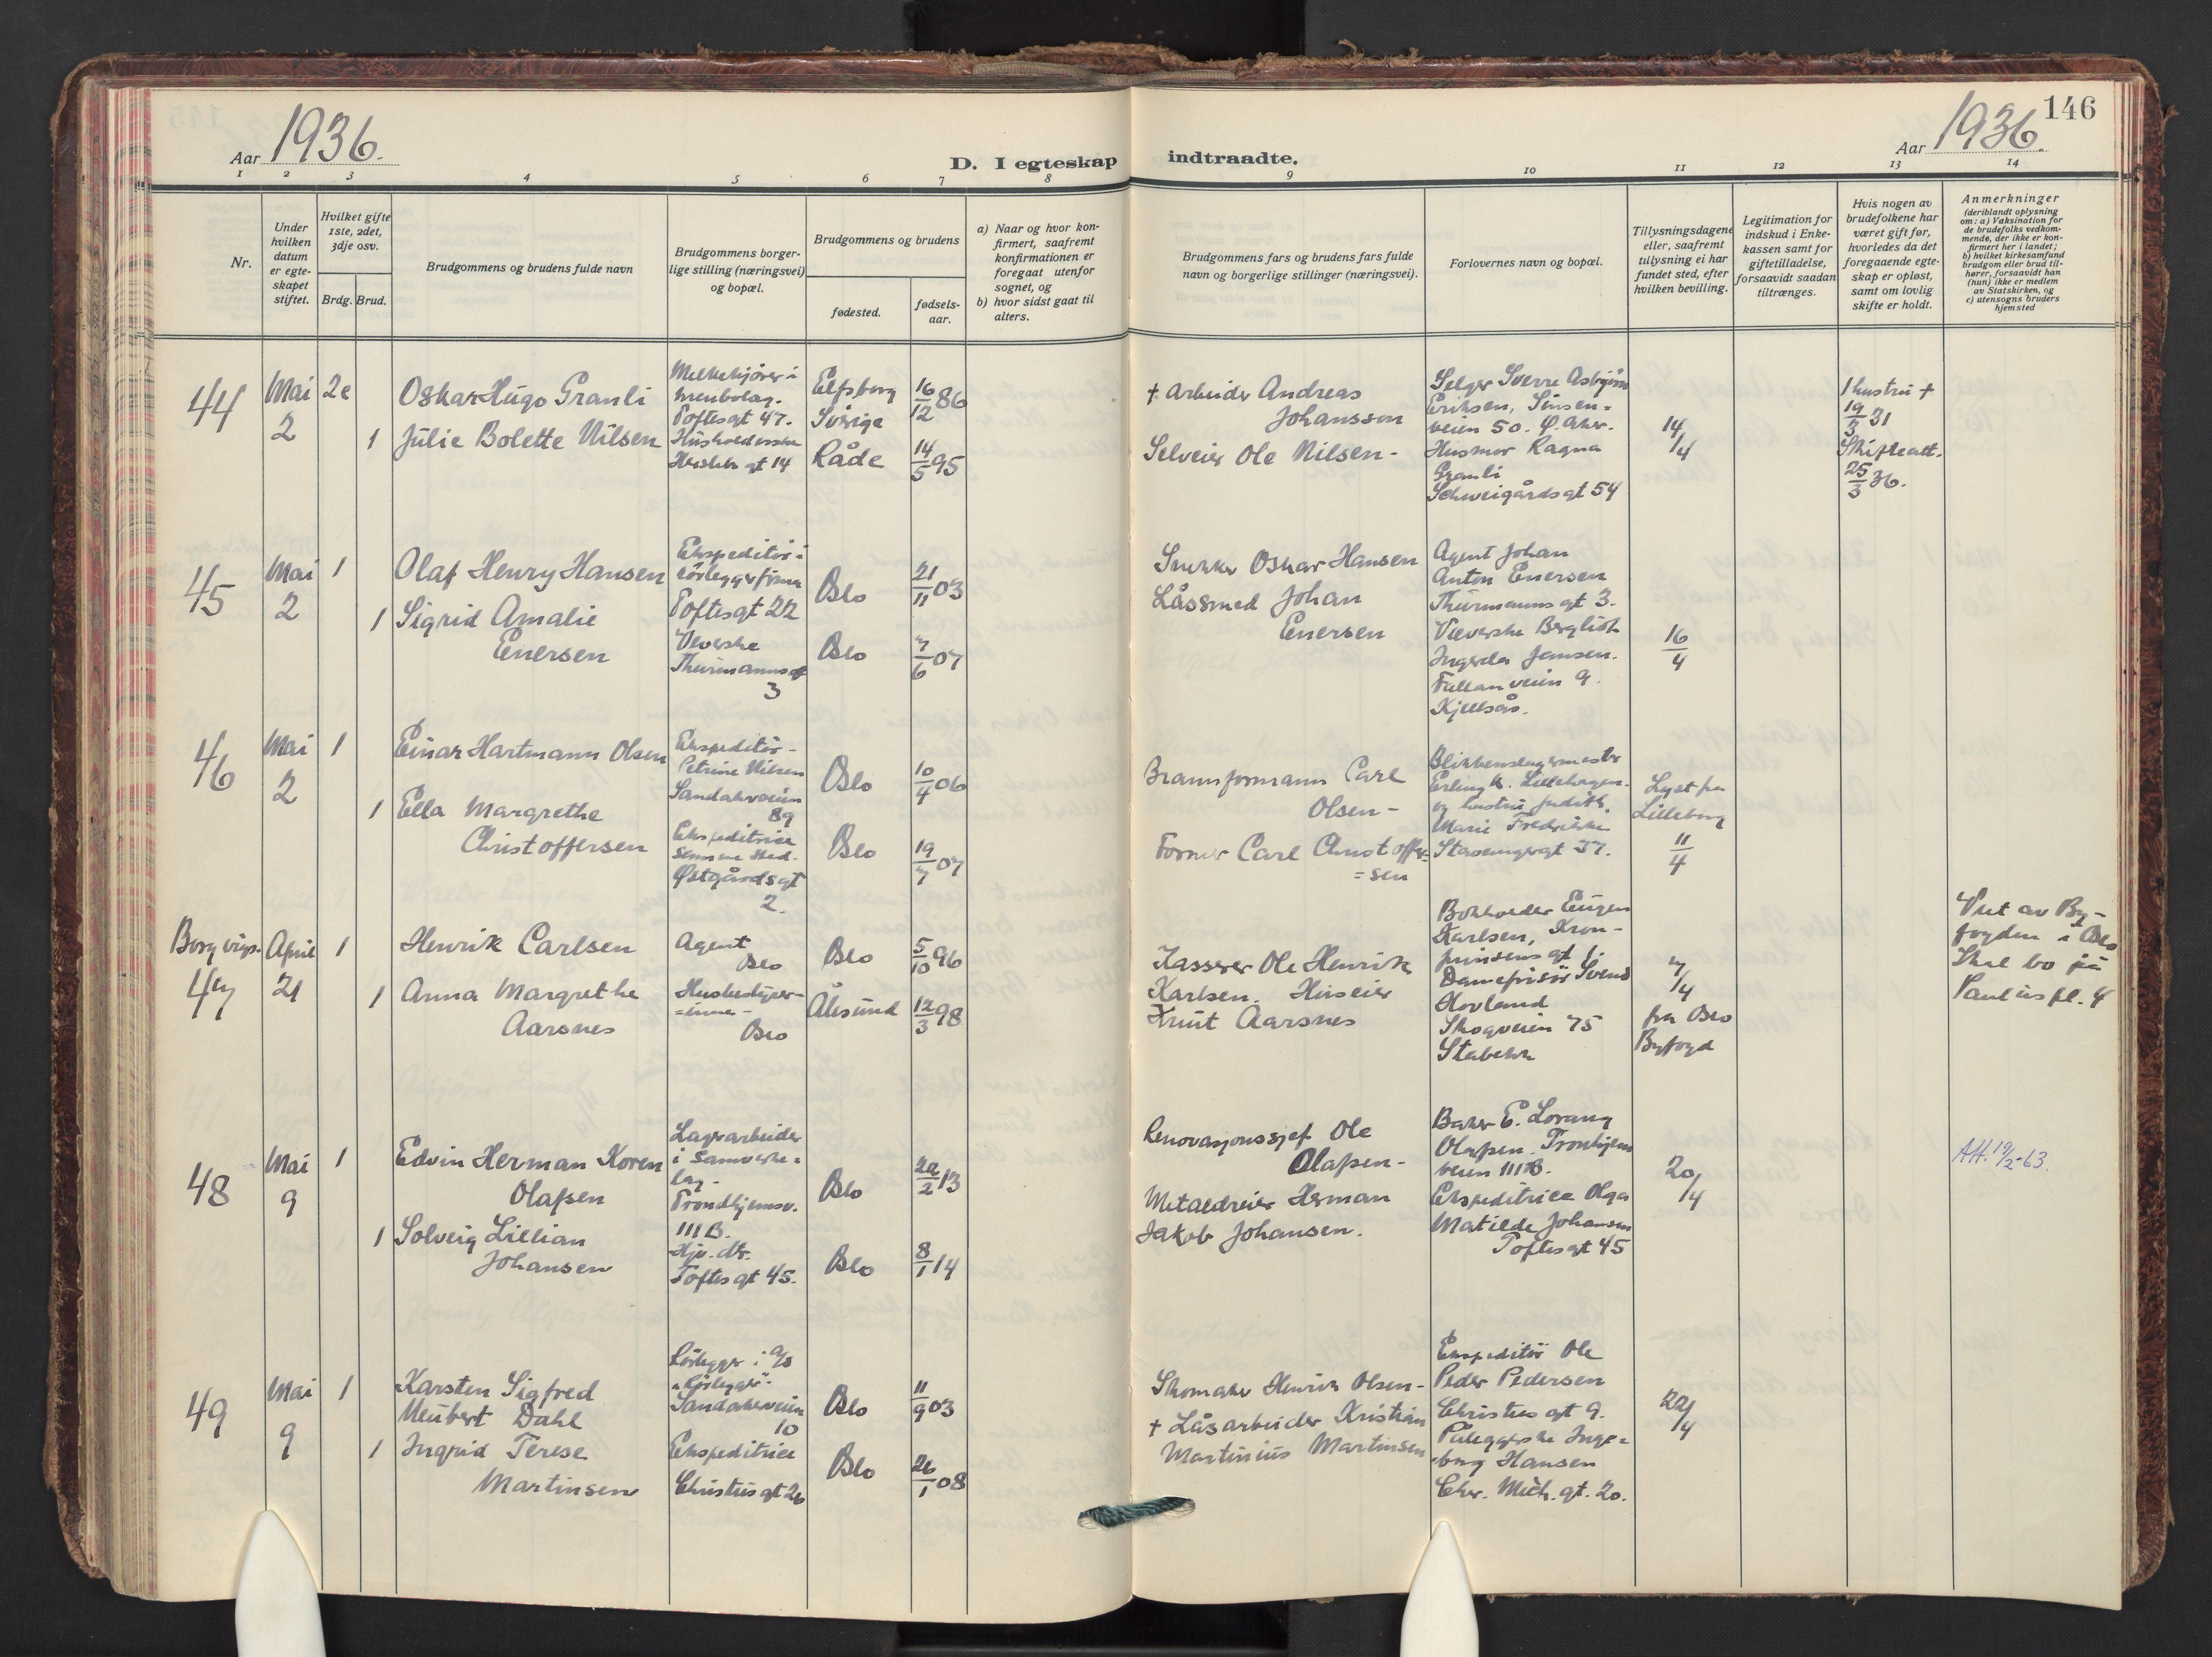 Aar 1936.
D. I egteskap indtraadte.
Aar 1936.
146
1 2 3 4 5 6 7 8 9 10 11 12 13 14
Nr.
Under hvilken datum er egte-skapet stiftet.
Hvilket gifte 1ste, 2det, 3dje osv.
Brdg. Brud.
Brudgommens og brudens fulde navn
Brudgommens borger-
lige stilling (næringsvei)
og bopæl.
Brudgommens og brudens
fødested.
fødsels-
aar.
a) Naar og hvor kon-
firmert, saafremt
konfirmationen er
foregaat utenfor
sognet, og
b) hvor sidst gaat til
alters.
Brudgommens fars og brudens fars fulde
navn og borgerlige stillinger (næringsvei).
Forlovernes navn og bopæl.
Tillysningsdagene
eller, saafremt
tillysning ei har
fundet sted, efter
hvilken bevilling.
Legitimation for
indskud i Enke-
kassen samt for
giftetilladelse,
forsaavidt saadan
tiltrænges.
Hvis nogen av
brudefolkene har
været gift før,
hvorledes da det
foregaaende egte-
skap er opløst,
samt om lovlig
skifte er holdt.
Anmerkninger
(deriblandt oplysning
om: a) Vaksination for
de brudefolks vedkom-
mende, der ikke er kon-
firmert her i landet;
b) hvilket kirkesamfund
brudgom eller brud til-
hører, forsaavidt han
(hun) ikke er medlem
av Statskirken, og
c) utensogns bruders
hjemsted
44
Mai
2
2e
1
Oskar Hugo Granli
Julie Bolette Nilsen
Melkekjører i
Toftesgt 47.
gt 14
Elfsborg
Sverige
Råde
16/12 86
14/5 95
† Arbeider Andreas
Johansson
Selveier Ole Nilsen-
Selger Sverre Asbjørn
Eriksen, Sinsen=
veien 50. Ø. Aker.
Husmor Ragna
Granli
Schweigårdsgt 54
14/4
1 hustru †
19/3 31
Skifteatt.
25/3 36.
45
Mai
2
1
1
Olaf Henry Hansen
Sigrid Amalie
Enersen
Ekspeditør i
rørleggerfirma
Toftesgt 22
Veverske
Thurmannsgt
3
Oslo
Oslo
21/11 03
7/6 07
Snekker Oskar Hansen
Låssmed Johan
Enersen
Agent Johan
Anton Enersen
Thurmannsgt 3.
Veverske Bergliot
Ingerda Jansen.
veien 9.
Kjelsås.
16/4
46
Mai
2
1
1
Einar Hartmann Olsen
Ella Margrethe
Christoffersen
Ekspeditør-
Petrine Nilsen
Sandakerveien
89
Ekspeditrice
samme sted.
Østgårdsgt
2.
Oslo
Oslo
10/4 06
19/7 07
Brannformann Carl
Olsen-
Former Carl Christoffer-
=sen
Blikkenslagermester
Erling K. Lillehagen
og hustru Judith
Marie Fredrikke
Stavangergt 37.
Lyst fra
Lilleborg
11/4
Borg vigs.
47
April
21
1
1
Henrik Carlsen
Anna Margrethe
Aarsnes
Agent
Oslo
Husbestyrer-
=inne-
Oslo
Oslo
Ålesund
5/10 96
12/3 98
Kasserer Ole Henrik
Karlsen. Huseier
Knut Aarsnes
Bokholder Eugen
Karlsen, Kron-
prinsens gt 1.
Damefrisør Svend
Hovland
Skogveien 75
Stabekk
7/4
fra Oslo
Byfogd
Viet av By-
fogden i Oslo
Skal bo på
Paulus pl. 4
48
Mai
9
1
1
Edvin Herman Koren
Olafsen
Solveig Lillian
Johansen
Lagerarbeider
i Samvirke=
lag-
Trondhjemsv.
111 B.
Hjv. dtr.
Toftesgt 45.
Oslo
Oslo
22/2 13
8/1 14
Renovasjonssjef Ole
Olafsen-
Metaldreier Herman
Jakob Johansen.
Baker E. Lorang
Olafsen. Tronhjems
veien 111 B.
Ekspeditrice Olga
Matilde Johansen
Toftesgt 45
20/4
AH. 19/2-63.
49
Mai
9
1
1
Karsten Sigfred
Neubert Dahl
Ingrid Terese
Martinsen
Rørlegger i A/S
"Rørlegger"-
Sandakerveien
10
Ekspeditrice
Christies gt 26
Oslo
Oslo
11/9 03
26/1 08
Skomaker Henrik Olsen-
† Låsarbeider Kristian
Martinius Martinsen
Ekspeditør Ole
Peder Pedersen
Christies gt 9.
Påleggerske Inge=
borg Hansen
Chr. Mich. gt. 20.
22/4